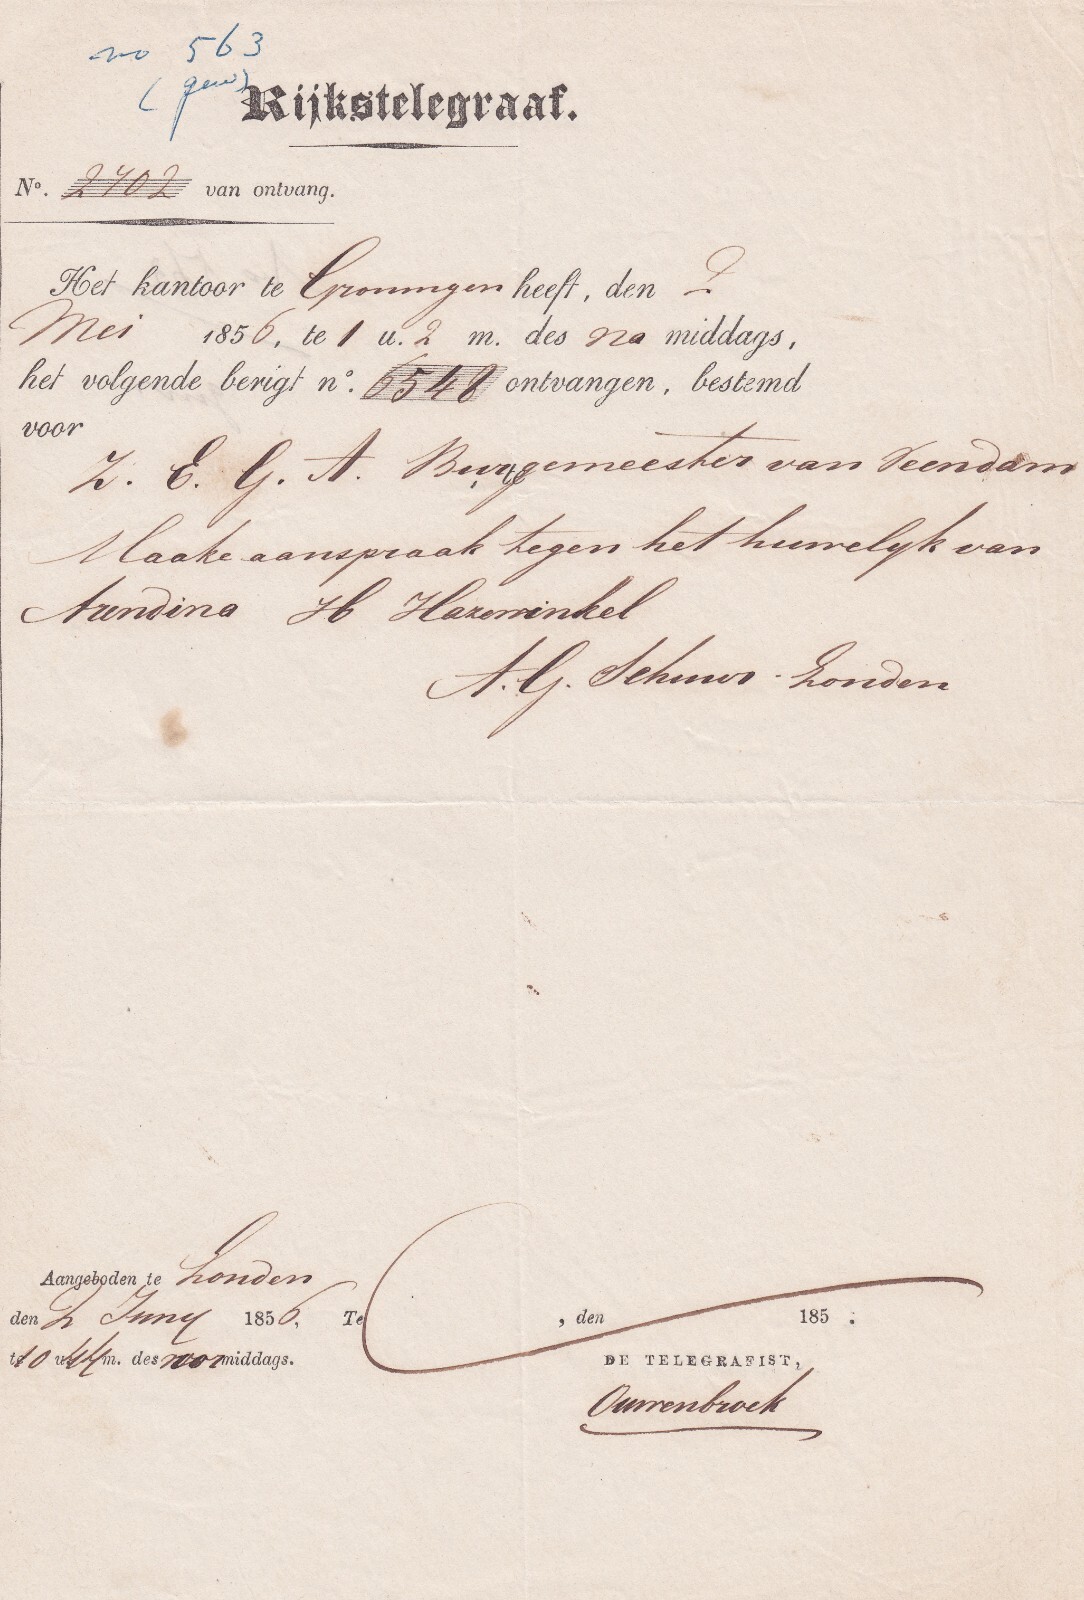 no 563
(gew)
Rijkstelegraaf.
No. 2702 van ontvang.
Het kantoor te Groningen heeft, den 2
Mei 1856, te 1 u. 2 m. des na middags,
het volgende berigt no. 6548 ontvangen, bestemd
voor
Z. E. G. A. Burgemeester van Veendam
Maake aanspraak tegen het huwelyk van
Arendina H Hazewinkel
A. G. Schuur - Londen
Aangeboden te Londen
den 2 Juny 1856, Te , den 185 .
te 10 u 44 m. des voormiddags.
DE TELEGRAFIST,